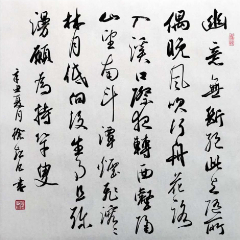 幽意無斷絕此去隨所
偶晚風吹行舟花路
入溪口際夜轉西壑隔
山望南斗潭煙飛溶溶
林月低向後生事且彌
漫願為持竿叟
辛丑夏月徐書